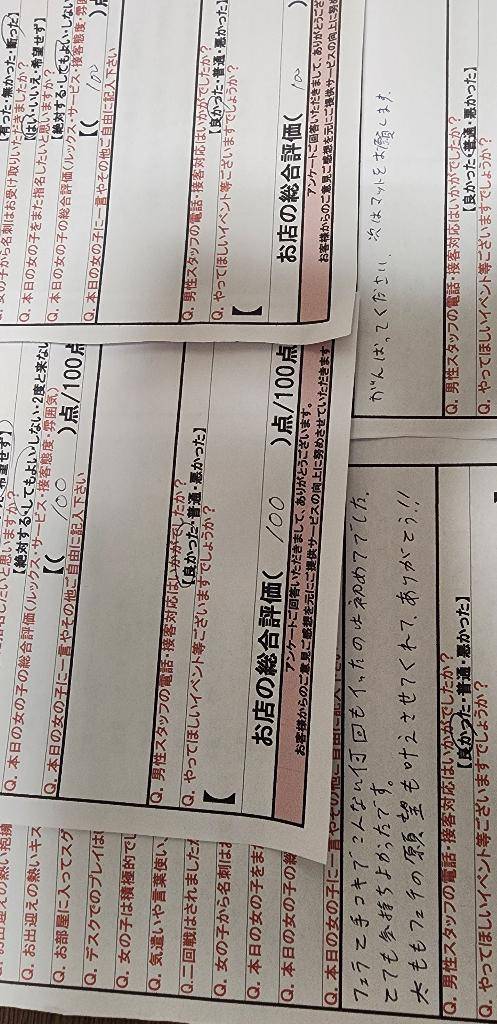 【有った・無かった・断った】
女の子から名刺はお受け取りいただきましたか?
【はい・いいえ・希望せず】
Q. 本日の女の子をまた指名したいと思いますか?
【絶対する・してもよい・しない
Q. 本日の女の子の総合評価(ルックス・サービス・接客態度・雰囲
【( 100 )点
Q. 本日の女の子に一言やその他ご自由に記入下さい
Q. 男性スタッフの電話・接客対応はいかがでしたか?
【良かった・普通・悪かった】
Q. やってほしいイベント等ございますでしょうか?
【
お店の総合評価( 100
アンケートご回答いただきまして、ありがとうござ
お客様からのご意見ご感想を元にご提供サービスの向上に努め
がんばってください、次はマットをお願します。
Q. 男性スタッフの電話・接客対応はいかがでしたか?
【良かった・普通・悪かった】
Q. やってほしいイベント等ございますでしょうか?
希望せず】
指名したいと思いますか?
【絶対する・してもよい・しない・2度と来ない
Q. 本日の女の子の総合評価(ルックス・サービス・接客態度・雰囲気)
【( 100 )点/100点
Q. 本日の女の子に一言やその他ご自由に記入下さい
Q. 男性スタッフの電話・接客対応はいかがでしたか?
【良かった・普通・悪かった】
Q. やってほしいイベント等ございますでしょうか?
【
お店の総合評価( 100 )点/100点
アンケートご回答いただきまして、ありがとうございます。
お客様からのご意見ご感想を元にご提供サービスの向上に努めさせていただきます
お出迎えの熱い抱擁
Q. お出迎えの熱いキス
Q. お部屋に入ってスグ
Q. デスクでのプレイは
Q. 女の子は積極的でし
Q. 気遣いや言葉使い、
Q. 二回戦はされました
Q. 女の子から名刺はお
Q. 本日の女の子をまた
Q. 本日の女の子の総
Q. 本日の女の子に一言やその他ご自由に記入下さい
フェラと手コキでこんない何回もイったのは初めてでした。
とても気持ちよかったです。
太ももフェチの願望も叶えさせてくれて、ありがとう!!
Q. 男性スタッフの電話・接客対応はいかがでしたか?
【良かった・普通・悪かった】
Q. やってほしいイベント等ございますでしょうか?